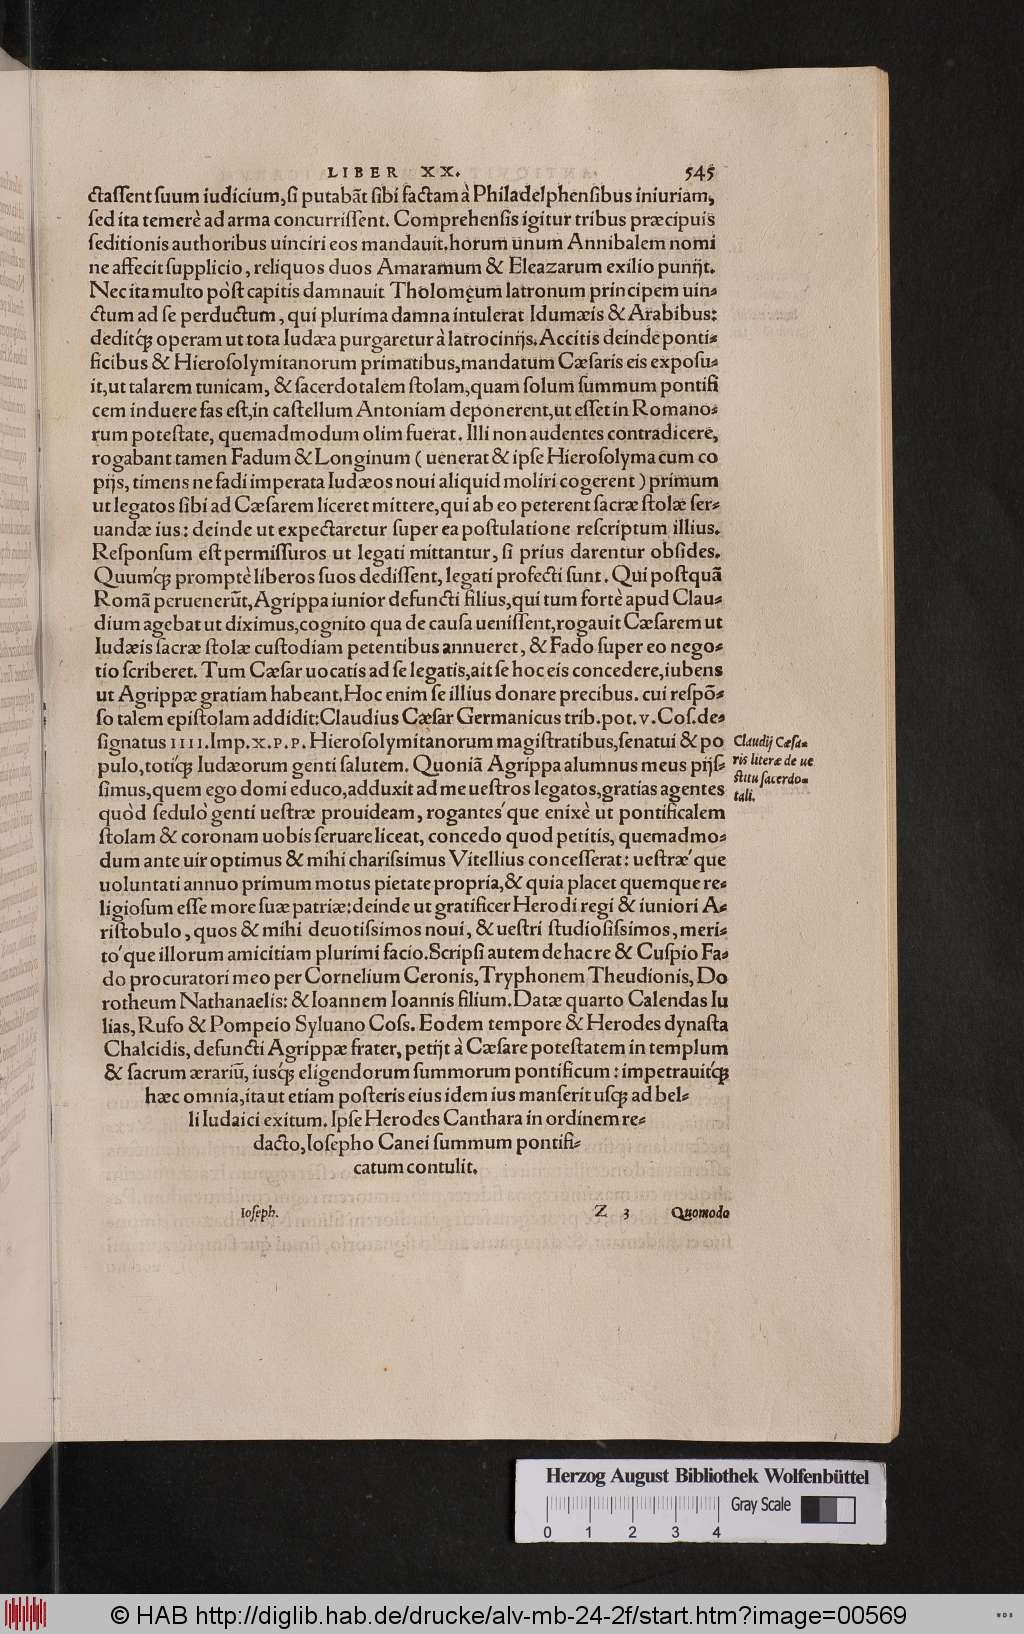 LIBER XX. 545
ctaſſent ſuum iudicium, ſi putabãt ſibi factam à Philadelphenſibus iniuriam,
ſed ita temerè ad arma concurriſſent. Comprehenſis igitur tribus præcipuis
ſeditionis authoribus uinciri eos mandauit. horum unum Annibalem nomi
ne affecit ſupplicio, reliquos duos Amaramum & Eleazarum exilio punijt.
Nec ita multo pòſt capitis damnauit Tholomęum latronum principem uin-
ctum ad ſe perductum, qui plurima damna intulerat Idumæis & Arabibus:
deditq́; operam ut tota Iudæa purgaretur à latrocinijs. Accitis deinde ponti-
ficibus & Hieroſolymitanorum primatibus, mandatum Cæſaris eis expoſu-
it, ut talarem tunicam, & ſacerdotalem ſtolam, quam ſolum ſummum pontifi
cem induere fas eſt, in caſtellum Antoniam deponerent, ut eſſet in Romano-
rum poteſtate, quemadmodum olim fuerat. Illi non audentes contradicere,
rogabant tamen Fadum & Longinum ( uenerat & ipſe Hieroſolyma cum co
pijs, timens ne fadi imperata Iudæos noui aliquid moliri cogerent ) primum
ut legatos ſibi ad Cæſarem liceret mittere, qui ab eo peterent ſacræ ſtolæ ſer-
uandæ ius: deinde ut expectaretur ſuper ea poſtulatione reſcriptum illius.
Reſponſum eſt permiſſuros ut legati mittantur, ſi prius darentur obſides.
Quumq́; promptè liberos ſuos dediſſent, legati profecti ſunt. Qui poſtquã
Romã peruenerũt, Agrippa iunior defuncti filius, qui tum fortè apud Clau-
dium agebat ut diximus, cognito qua de cauſa ueniſſent, rogauit Cæſarem ut
Iudæis ſacræ ſtolæ cuſtodiam petentibus annueret, & Fado ſuper eo nego-
tio ſcriberet. Tum Cæſar uocatis ad ſe legatis, ait ſe hoc eis concedere, iubens
ut Agrippæ gratiam habeant. Hoc enim ſe illius donare precibus. cui reſpõ-
ſo talem epiſtolam addidit: Claudius Cæſar Germanicus trib. pot. v. Coſ. de-
ſignatus IIII. Imp. X. P. P. Hieroſolymitanorum magiſtratibus, ſenatui & po
pulo, totiq́; Iudæorum genti ſalutem. Quoniã Agrippa alumnus meus pijſ-
ſimus, quem ego domi educo, adduxit ad me ueſtros legatos, gratias agentes
quòd ſedulò genti ueſtræ prouideam, rogantes'que enixè ut pontificalem
ſtolam & coronam uobis ſeruare liceat, concedo quod petitis, quemadmo-
dum ante uir optimus & mihi chariſsimus Vitellius conceſſerat: ueſtræ'que
uoluntati annuo primum motus pietate propria, & quia placet quemque re-
ligioſum eſſe more ſuæ patriæ: deinde ut gratificer Herodi regi & iuniori A-
riſtobulo, quos & mihi deuotiſsimos noui, & ueſtri ſtudioſiſsimos, meri-
to'que illorum amicitiam plurimi facio. Scripſi autem de hac re & Cuſpio Fa-
do procuratori meo per Cornelium Ceronis, Tryphonem Theudionis, Do
rotheum Nathanaelis: & Ioannem Ioannis filium. Datæ quarto Calendas Iu
lias, Rufo & Pompeio Syluano Coſs. Eodem tempore & Herodes dynaſta
Chalcidis, defuncti Agrippæ frater, petijt à Cæſare poteſtatem in templum
& ſacrum ærariũ, iusq́; eligendorum ſummorum pontificum: impetrauitq́;
hæc omnia, ita ut etiam poſteris eius idem ius manſerit uſq; ad bel-
li Iudaici exitum. Ipſe Herodes Canthara in ordinem re-
dacto, Ioſepho Canei ſummum pontifi-
catum contulit.
Claudij Cæſa-
ris literæ de ue
ſtitu ſacerdo-
tali.
Ioſeph. Z 3 Quomodo
Herzog August Bibliothek Wolfenbüttel
Gray Scale
0 1 2 3 4
© HAB http://diglib.hab.de/drucke/alv-mb-24-2f/start.htm?image=00569